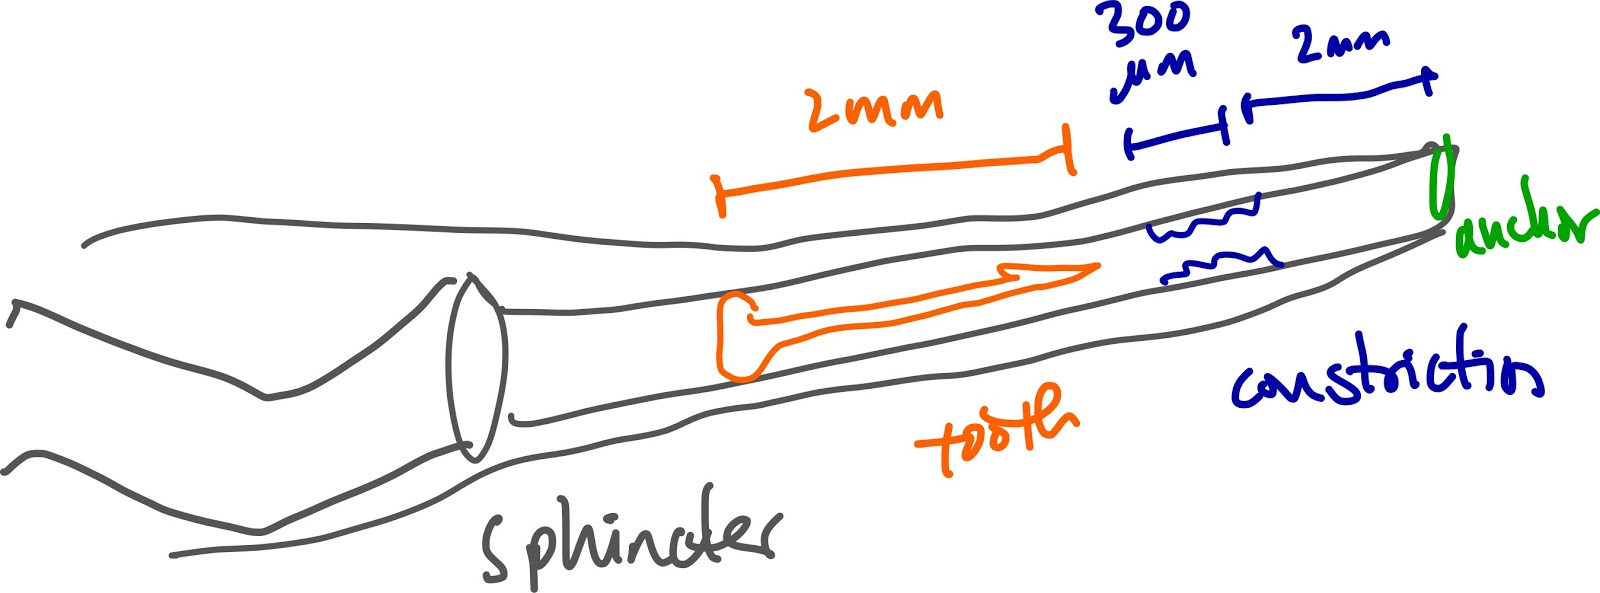 300
µm
2mm
2mm
anchor
constriction
tooth
sphincter